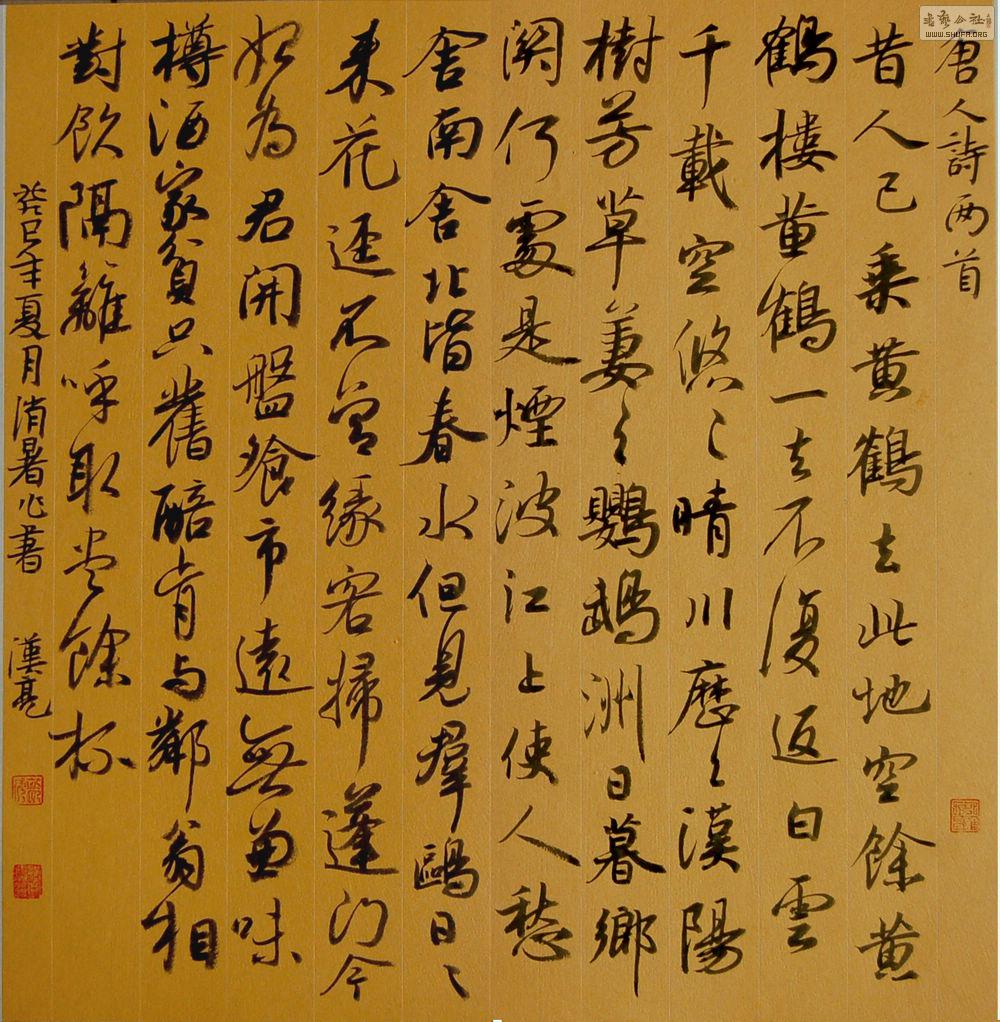 书艺公社
WWW.SHUFA.ORG
唐人詩两首
昔人已乘黄鶴去此地空餘黄
鶴樓黄鶴一去不復返白雲
千載空悠々晴川歷々漢陽
樹芳草萋々鸚鵡洲日暮鄉
関何處是煙波江上使人愁
舍南舍北皆春水但見羣鷗日々
来花逕不曾缘客掃蓬门今
始為君開盤飱市遠無兼味
樽酒家貧只舊醅肯与鄰翁相
對飲隔籬呼取尽餘杯
癸巳年夏月消暑作書 漢亮